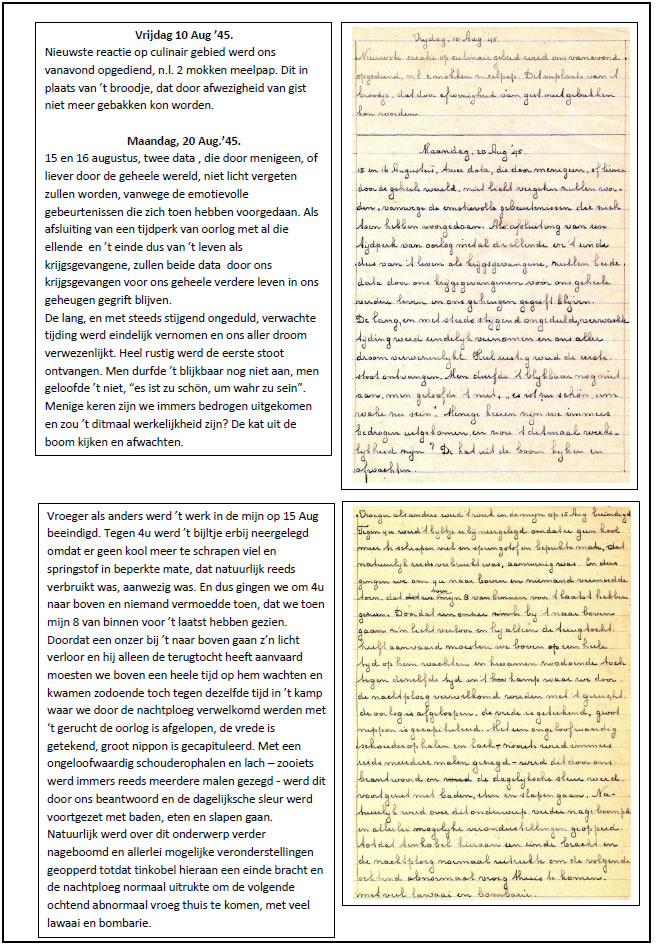 Vrijdag 10 Aug ’45.
Nieuwste reactie op culinair gebied werd ons
vanavond opgediend, n.l. 2 mokken meelpap. Dit in
plaats van ’t broodje, dat door afwezigheid van gist
niet meer gebakken kon worden.
Maandag, 20 Aug.’45.
15 en 16 augustus, twee data , die door menigeen, of
liever door de geheele wereld, niet licht vergeten
zullen worden, vanwege de emotievolle
gebeurtenissen die zich toen hebben voorgedaan. Als
afsluiting van een tijdperk van oorlog met al die
ellende en ’t einde dus van ’t leven als
krijgsgevangene, zullen beide data door ons
krijgsgevangen voor ons geheele verdere leven in ons
geheugen gegrift blijven.
De lang, en met steeds stijgend ongeduld, verwachte
tijding werd eindelijk vernomen en ons aller droom
verwezenlijkt. Heel rustig werd de eerste stoot
ontvangen. Men durfde ’t blijkbaar nog niet aan, men
geloofde ’t niet, “es ist zu schön, um wahr zu sein”.
Menige keren zijn we immers bedrogen uitgekomen
en zou ’t ditmaal werkelijkheid zijn? De kat uit de
boom kijken en afwachten.
Vrijdag, 10 Aug '45.
Nieuwste creatie op culinair gebied werd ons vanavond
opgediend, n.l. 2 mokken meelpap. Dit inplaats van 't
broodje, dat door afwezigheid van gist niet gebakken
kon worden.
Maandag, 20 Aug '45.
15 en 16 Augustus, twee data, die door menigeen, of liever
door de geheele wereld, niet licht vergeten zullen wor-
den, vanwege de emotievolle gebeurtenissen die zich
toen hebben voorgedaan. Als afsluiting van een
tijdperk van oorlog met al de ellende en 't einde
dus van 't leven als krijgsgevangene, zullen beide
data door ons krijgsgevangenen voor ons geheele
verdere leven in ons geheugen gegrift blijven.
De lang, en met steeds stijgend ongeduld, verwachte
tijding werd eindelijk vernomen en ons aller
droom verwezenlijkt. Heel rustig werd de eerste
stoot ontvangen. Men durfde 't blijkbaar nog niet
aan, men geloofde 't niet, "es ist zu schön, um
wahr zu sein". Menige keeren zijn we immers
bedrogen uitgekomen, en zou 't ditmaal werke-
lijkheid zijn? De kat uit de boom kijken en
afwachten.
Vroeger als anders werd ’t werk in de mijn op 15 Aug
beëindigd. Tegen 4u werd ’t bijltje erbij neergelegd
omdat er geen kool meer te schrapen viel en
springstof in beperkte mate, dat natuurlijk reeds
verbruikt was, aanwezig was. En dus gingen we om 4u
naar boven en niemand vermoedde toen, dat we toen
mijn 8 van binnen voor ’t laatst hebben gezien.
Doordat een onzer bij ’t naar boven gaan z’n licht
verloor en hij alleen de terugtocht heeft aanvaard
moesten we boven een heele tijd op hem wachten en
kwamen zodoende toch tegen dezelfde tijd in ’t kamp
waar we door de nachtploeg verwelkomd werden met
‘t gerucht de oorlog is afgelopen, de vrede is
getekend, groot nippon is gecapituleerd. Met een
ongeloofwaardig schouderophalen en lach – zooiets
werd immers reeds meerdere malen gezegd - werd dit
door ons beantwoord en de dagelijksche sleur werd
voortgezet met baden, eten en slapen gaan.
Natuurlijk werd over dit onderwerp verder
nageboomd en allerlei mogelijke veronderstellingen
geopperd totdat tinkobel hieraan een einde bracht en
de nachtploeg normaal uitrukte om de volgende
ochtend abnormaal vroeg thuis te komen, met veel
lawaai en bombarie.
Vroeger als anders werd 't werk in de mijn op 15 Aug. beëindigd
Tegen 4u werd 't bijltje erbij neergelegd omdat er geen kool
meer te schrapen viel en springstof, in beperkte mate, dat
natuurlijk reeds verbruikt was, aanwezig was. En dus
gingen we om 4u naar boven en niemand vermoedde
toen, dat we toen mijn 8 van binnen voor 't laatst hebben
gezien. Doordat een onzer bij 't naar boven
gaan z'n licht verloor en hij alleen de terugtocht
heeft aanvaard moesten we boven op een heele
tijd op hem wachten en kwamen zodoende toch
tegen dezelfde tijd in 't kamp waar we door
de nachtploeg verwelkomd werden met 't gerucht:
de oorlog is afgeloopen, de vrede is getekend, groot
nippon is gecapituleerd. Met een ongeloofwaardig
schouderophalen en lach - zooiets werd immers
reeds meerdere malen gezegd - werd dit door ons
beantwoord en de dagelijksche sleur werd
voortgezet met baden, eten en slapen gaan. Na-
tuurlijk werd over dit onderwerp verder nageboomd
en allerlei mogelijke veronderstellingen geopperd
totdat tinkobel hieraan een einde bracht en
de nachtploeg normaal uitrukte om de volgende
ochtend abnormaal vroeg thuis te komen.
met veel lawaai en bombarie.